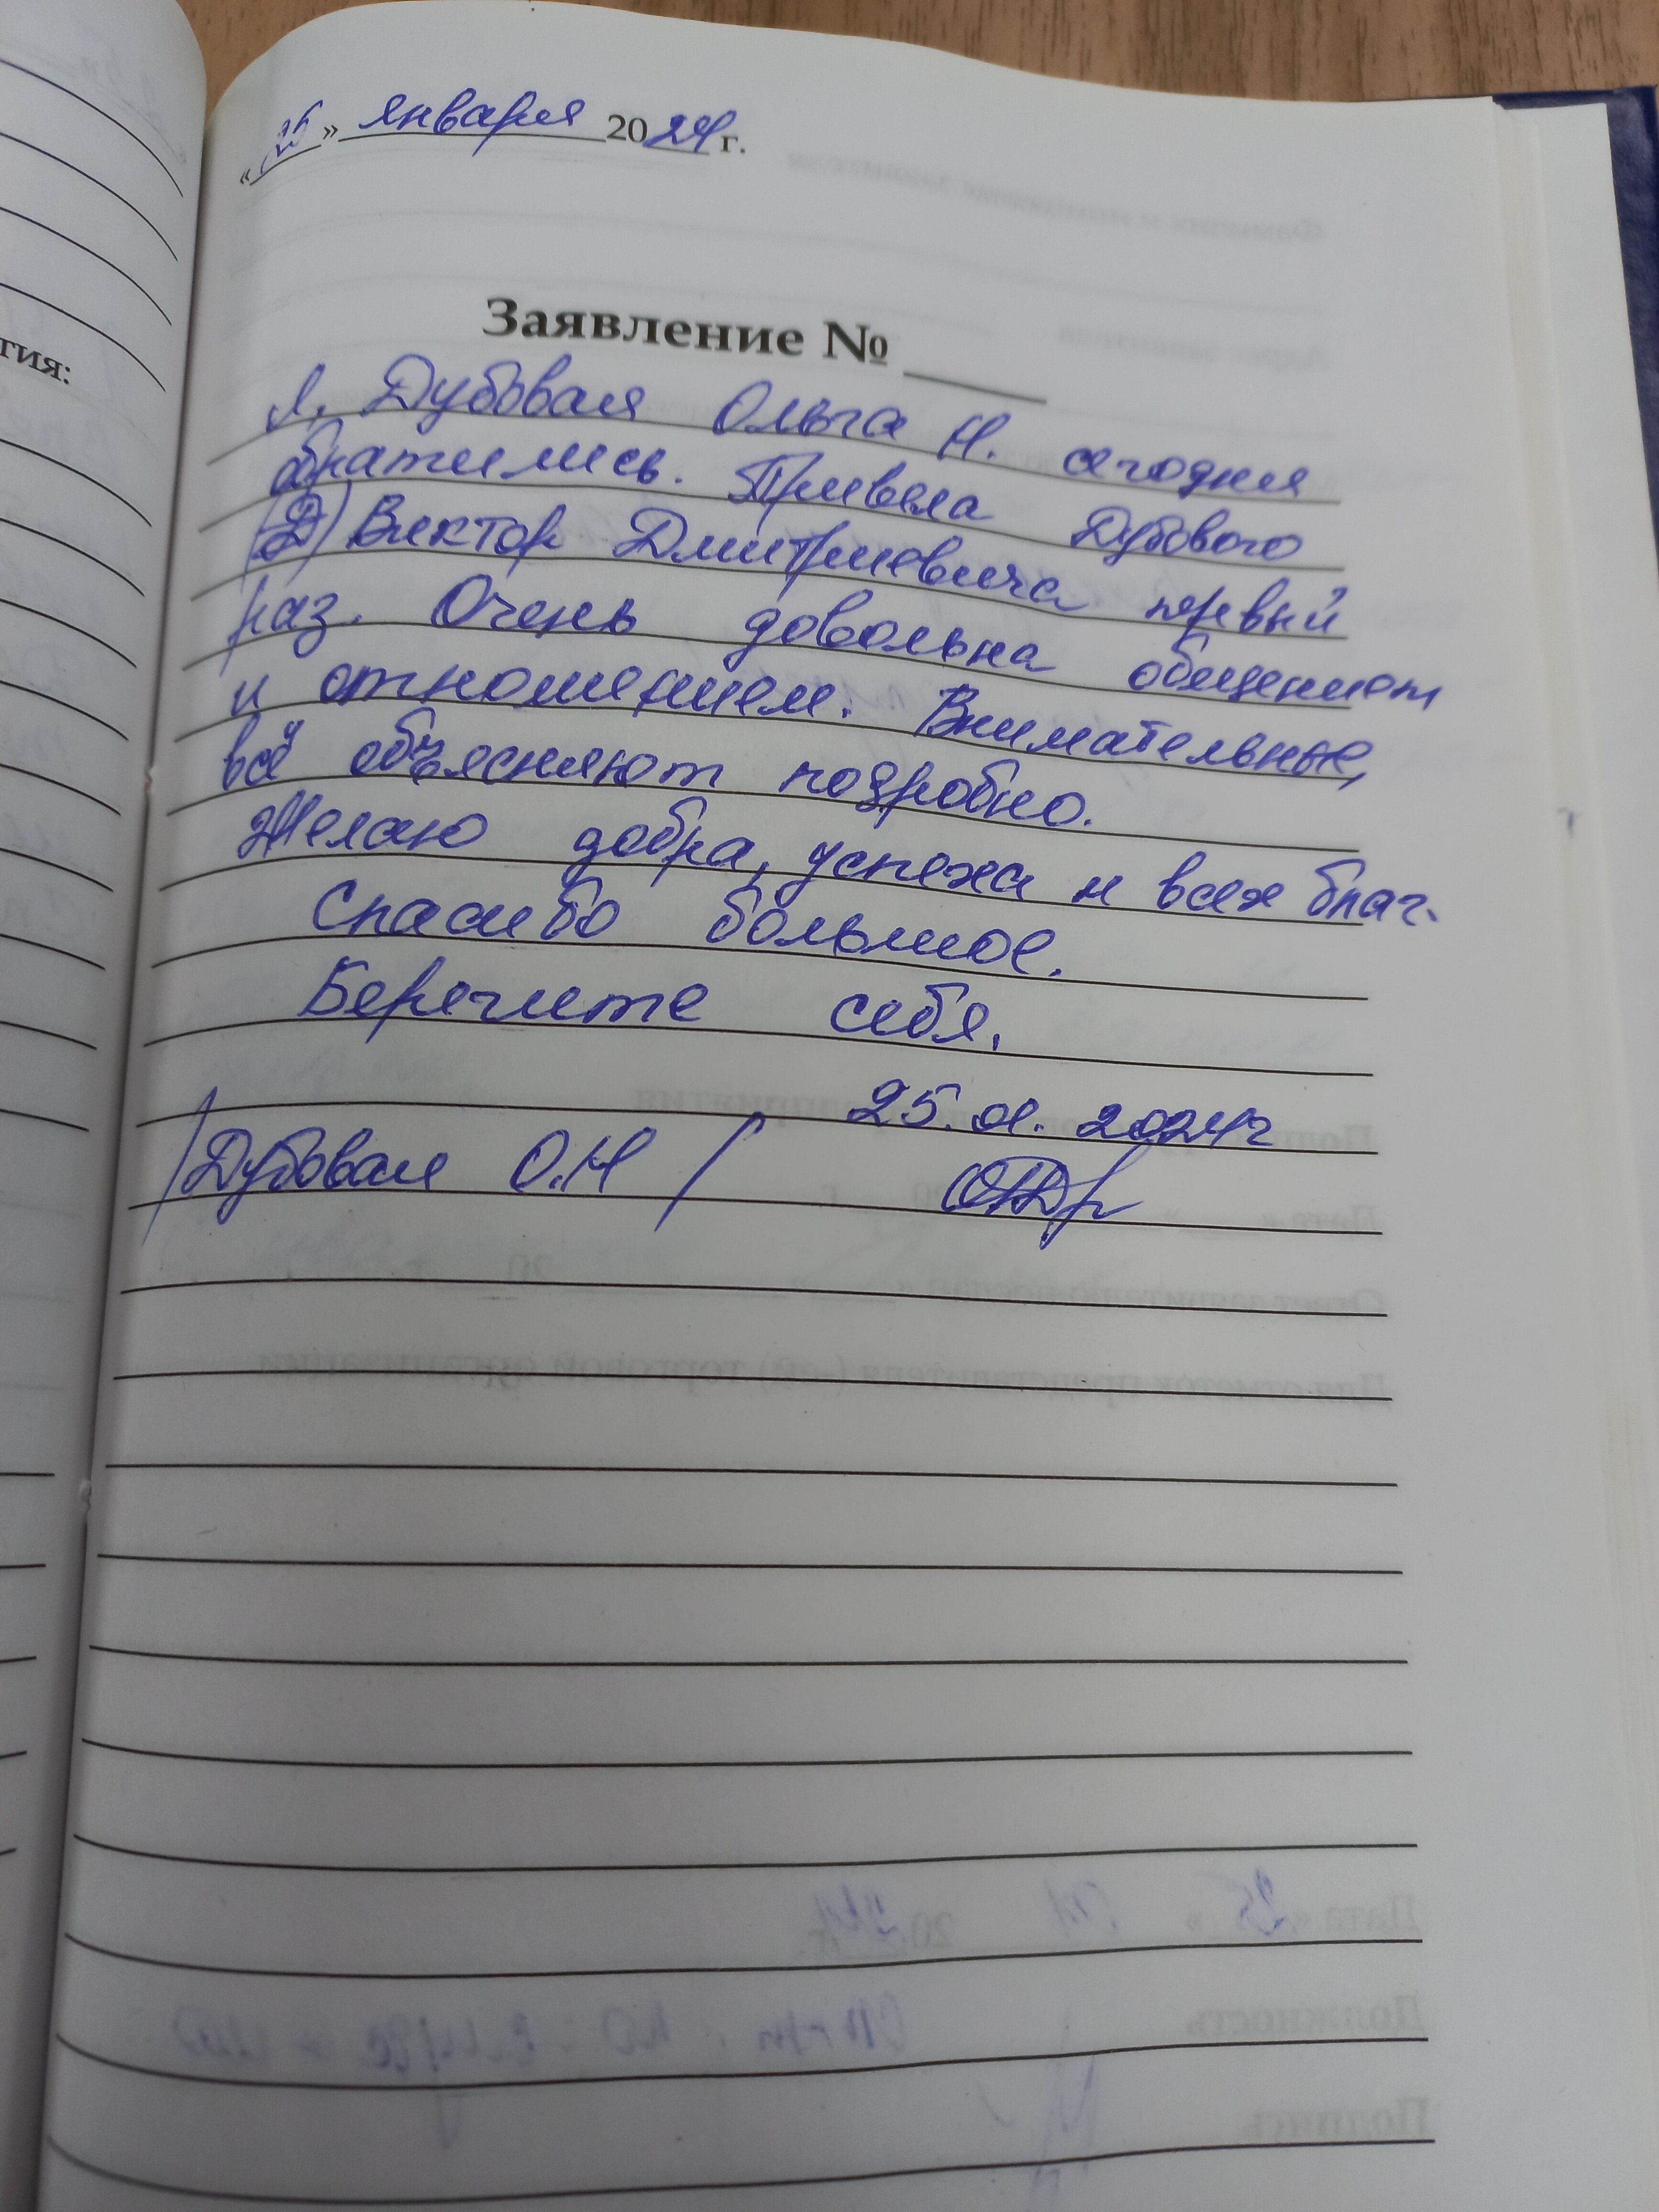 «25» января 2024 г.
тия:
Заявление №
Я, Дубовая Ольга Н. сегодня
обратились. Привела Дубового
(Д) Виктор Дмитриевича первый
раз. Очень довольна общением
и отношением. Внимательные,
всё объясняют подробно.
Желаю добра, успеха и всех благ.
Спасибо большое.
Берегите себя.
25.01.2024г
/Дубовая О.Н /